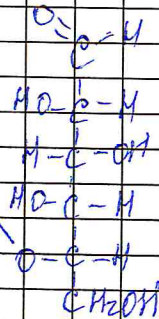 O H
C
HO-C-H
H-C-OH
HO-C-H
O-C-H
CH2OH